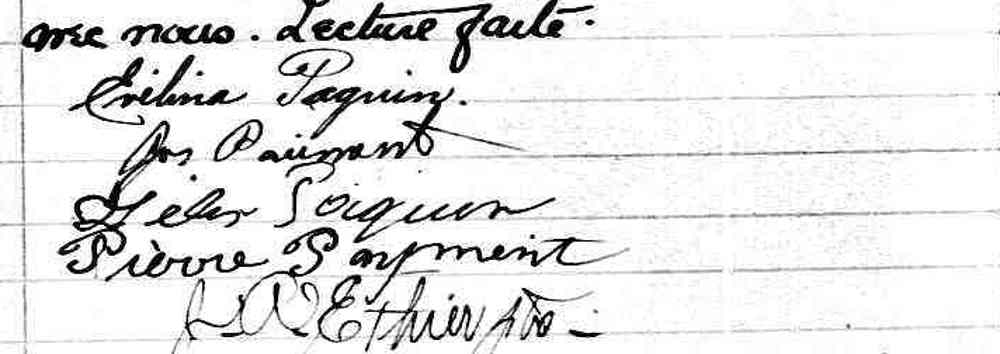 avec nous. Lecture faite.
Evélina Paquin.
Jos Paiment
Félix Paquin
Pierre Payment
Ethier ptre